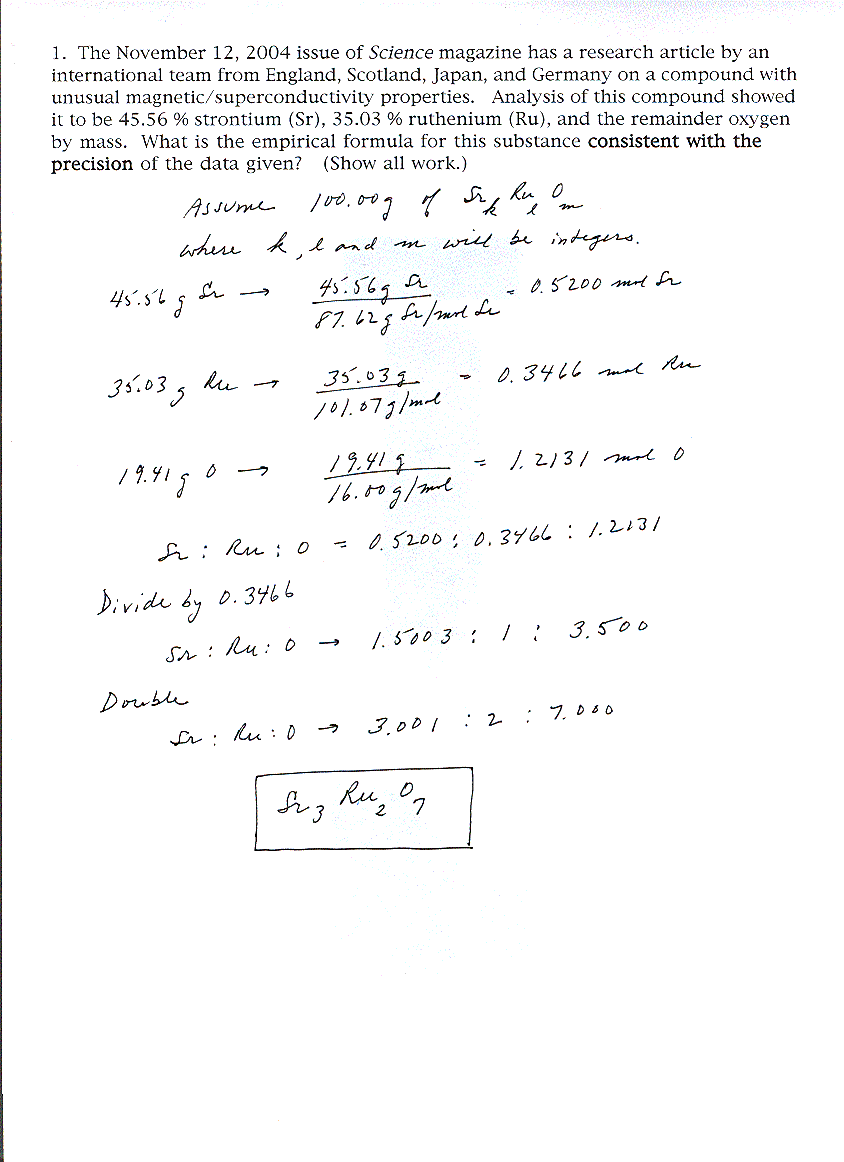 1. The November 12, 2004 issue of Science magazine has a research article by an
international team from England, Scotland, Japan, and Germany on a compound with
unusual magnetic/superconductivity properties. Analysis of this compound showed
it to be 45.56 % strontium (Sr), 35.03 % ruthenium (Ru), and the remainder oxygen
by mass. What is the empirical formula for this substance consistent with the
precision of the data given? (Show all work.)
Assume 100.00g of Sr_k Ru_l O_m
where k, l and m will be integers.
45.56 g Sr → 45.56g Sr / 87.62g Sr/mol Sr = 0.5200 mol Sr
35.03 g Ru → 35.03g / 101.07g/mol = 0.3466 mol Ru
19.41 g O → 19.41 g / 16.00g/mol = 1.2131 mol O
Sr : Ru : O = 0.5200 : 0.3466 : 1.2131
Divide by 0.3466
Sr : Ru : O → 1.5003 : 1 : 3.500
Double
Sr : Ru : O → 3.001 : 2 : 7.000
Sr₃ Ru₂ O₇